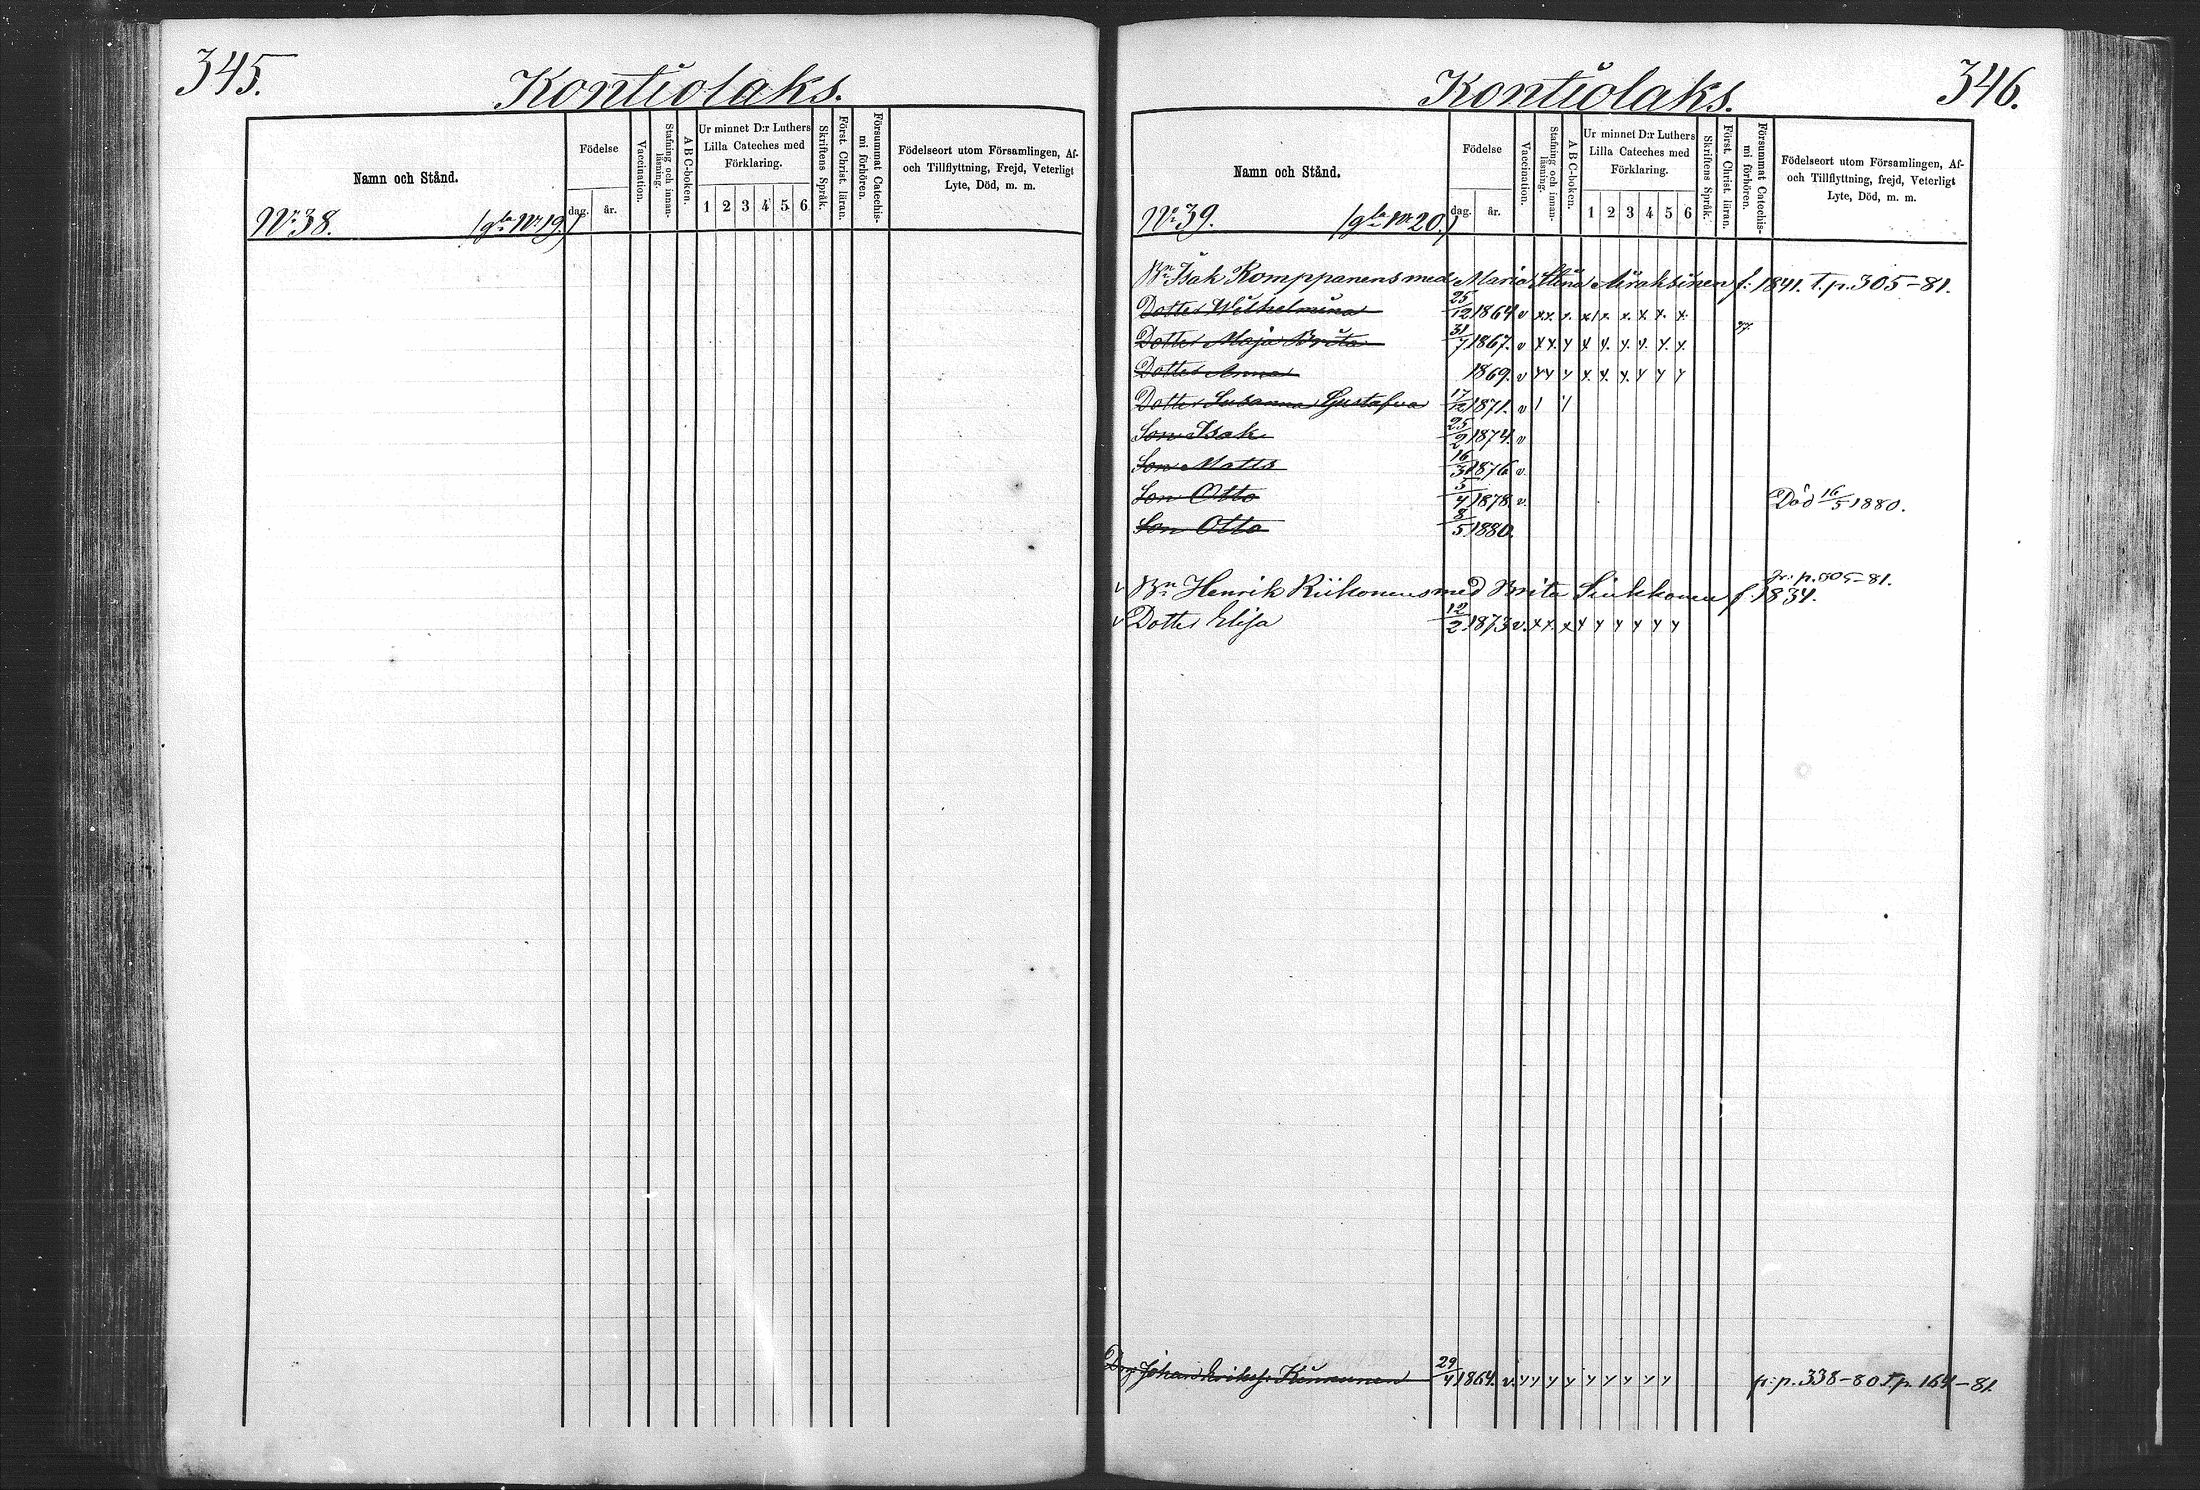 345.
Kontiolaks.
Namn och Stånd.
Födelse
dag. år.
Vaccination.
Stafning och innanläsning.
ABC-boken.
Ur minnet D:r Luthers Lilla Cateches med Förklaring.
1 2 3 4 5 6
Skriftens Språk.
Först. Christ. läran.
Försummat Catechismi förhören.
Födelseort utom Församlingen, Af-
och Tillflyttning, Frejd, Veterligt
Lyte, Död, m. m.
No 38. (gla No 19.)
Kontiolaks.
346.
Namn och Stånd.
Födelse
dag. år.
Vaccination.
Stafning och innanläsning.
ABC-boken.
Ur minnet D:r Luthers Lilla Cateches med Förklaring.
1 2 3 4 5 6
Skriftens Språk.
Först. Christ. läran.
Försummat Catechismi förhören.
Födelseort utom Församlingen, Af-
och Tillflyttning, frejd, Veterligt
Lyte, Död, m. m.
No 39. (gla No 20.)
Bn Isak Komppanens med Maria Stina f: 1841. t. p. 305-81.
Dotter Wilhelmina 25/12 1864 v x x. x. x x. x. x x. x.
Dotter Maja Brita 31/7 1867. v x x. y x y. y. y. y. y.
Dotter Anna 1869. v y y y x. y. y. y y y
Dotter Susanna Gustafva 17/12 1871. v
Son Isak 25/2 1874. v
Son Matts 16/3 1876 v.
Son Otto 5/4 1878. v. Död 16/5 1880.
Son Otto 8/5 1880.
fr: p. 305-81.
v Bn Henrik Riikonens med Brita Sinkkonen f. 1834.
v Dotter Elisa 12/2 1873 v. x x. x y y y y y y
Johan Erikss. Kinnunen 29/4 1864. v. y y y y y y y y y fr: p. 338-80 t. p. 164-81.